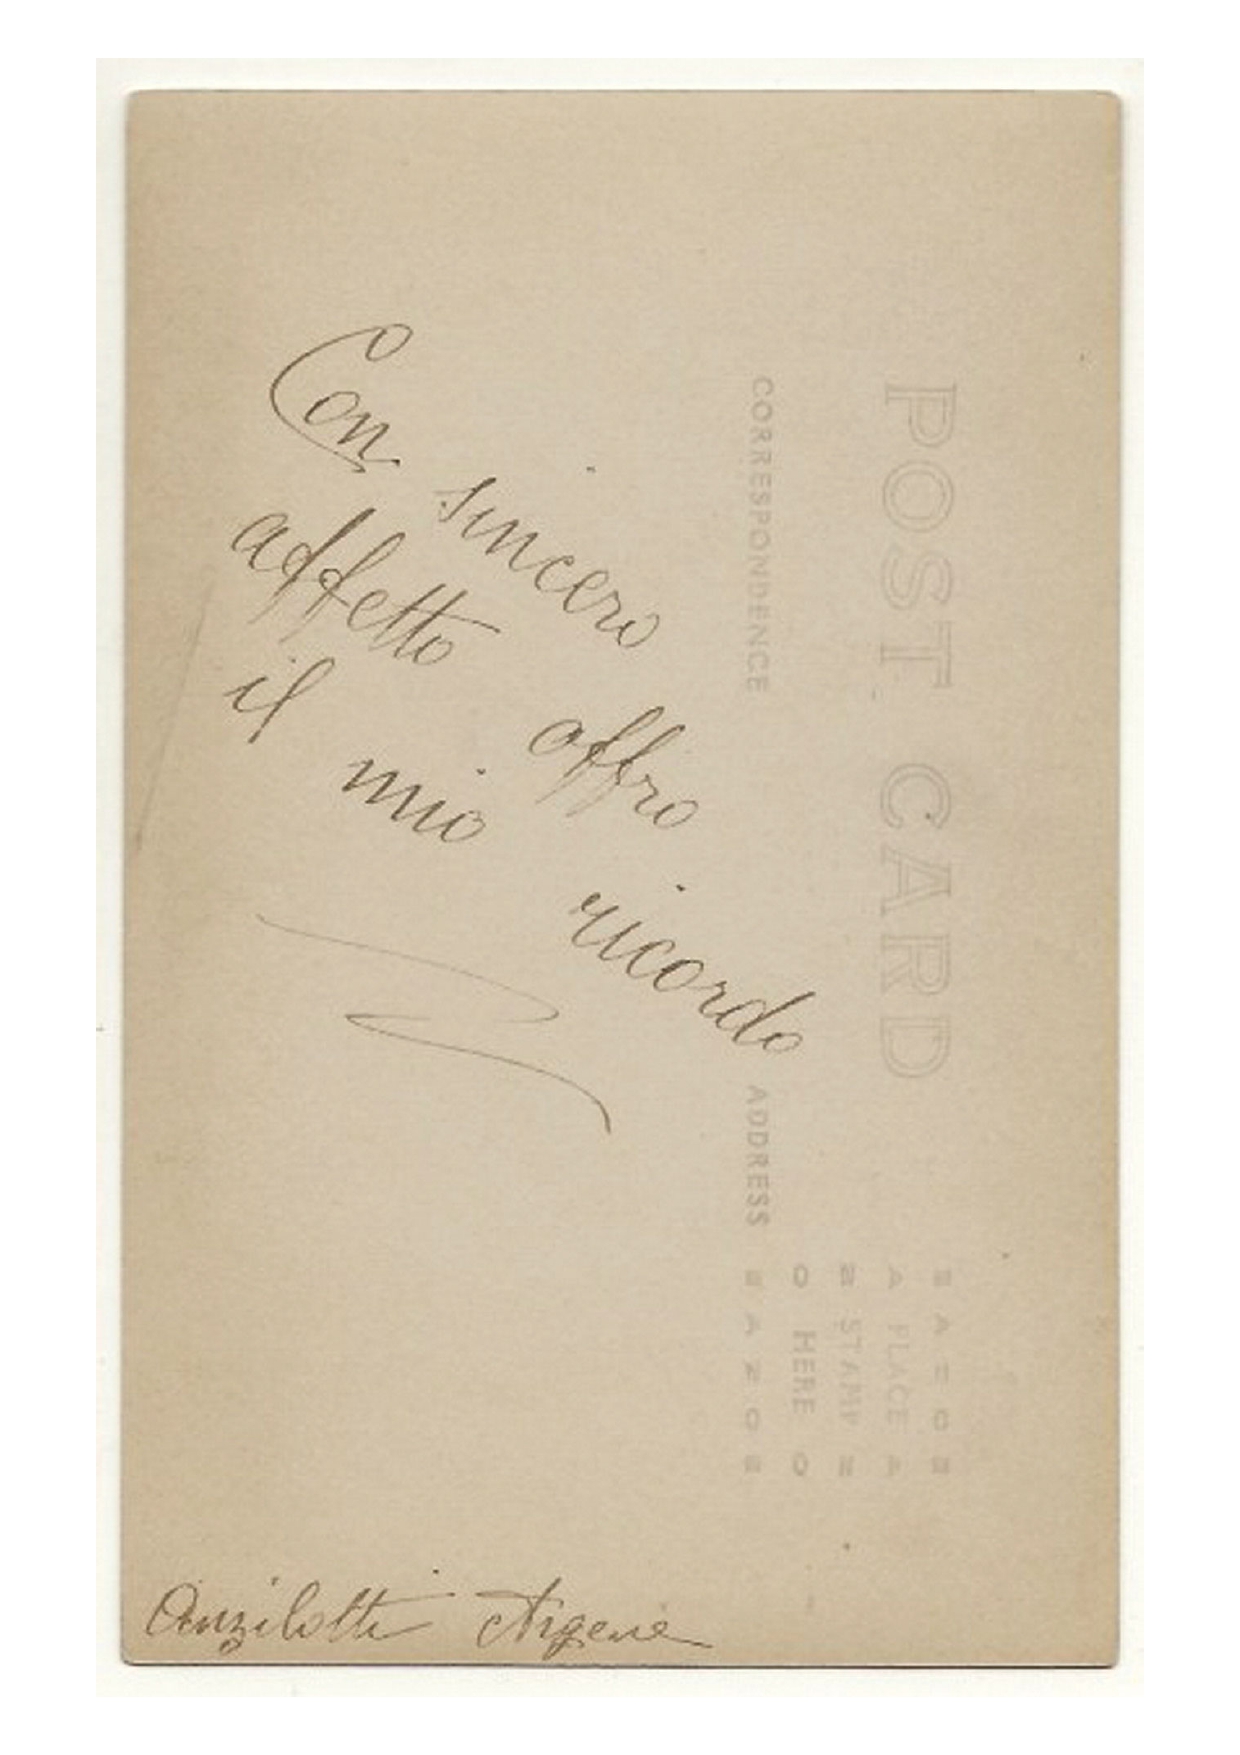 POST CARD
CORRESPONDENCE
ADDRESS
PLACE
STAMP
HERE
Con sincero
affetto offro
il mio ricordo
Anzilotti Argene